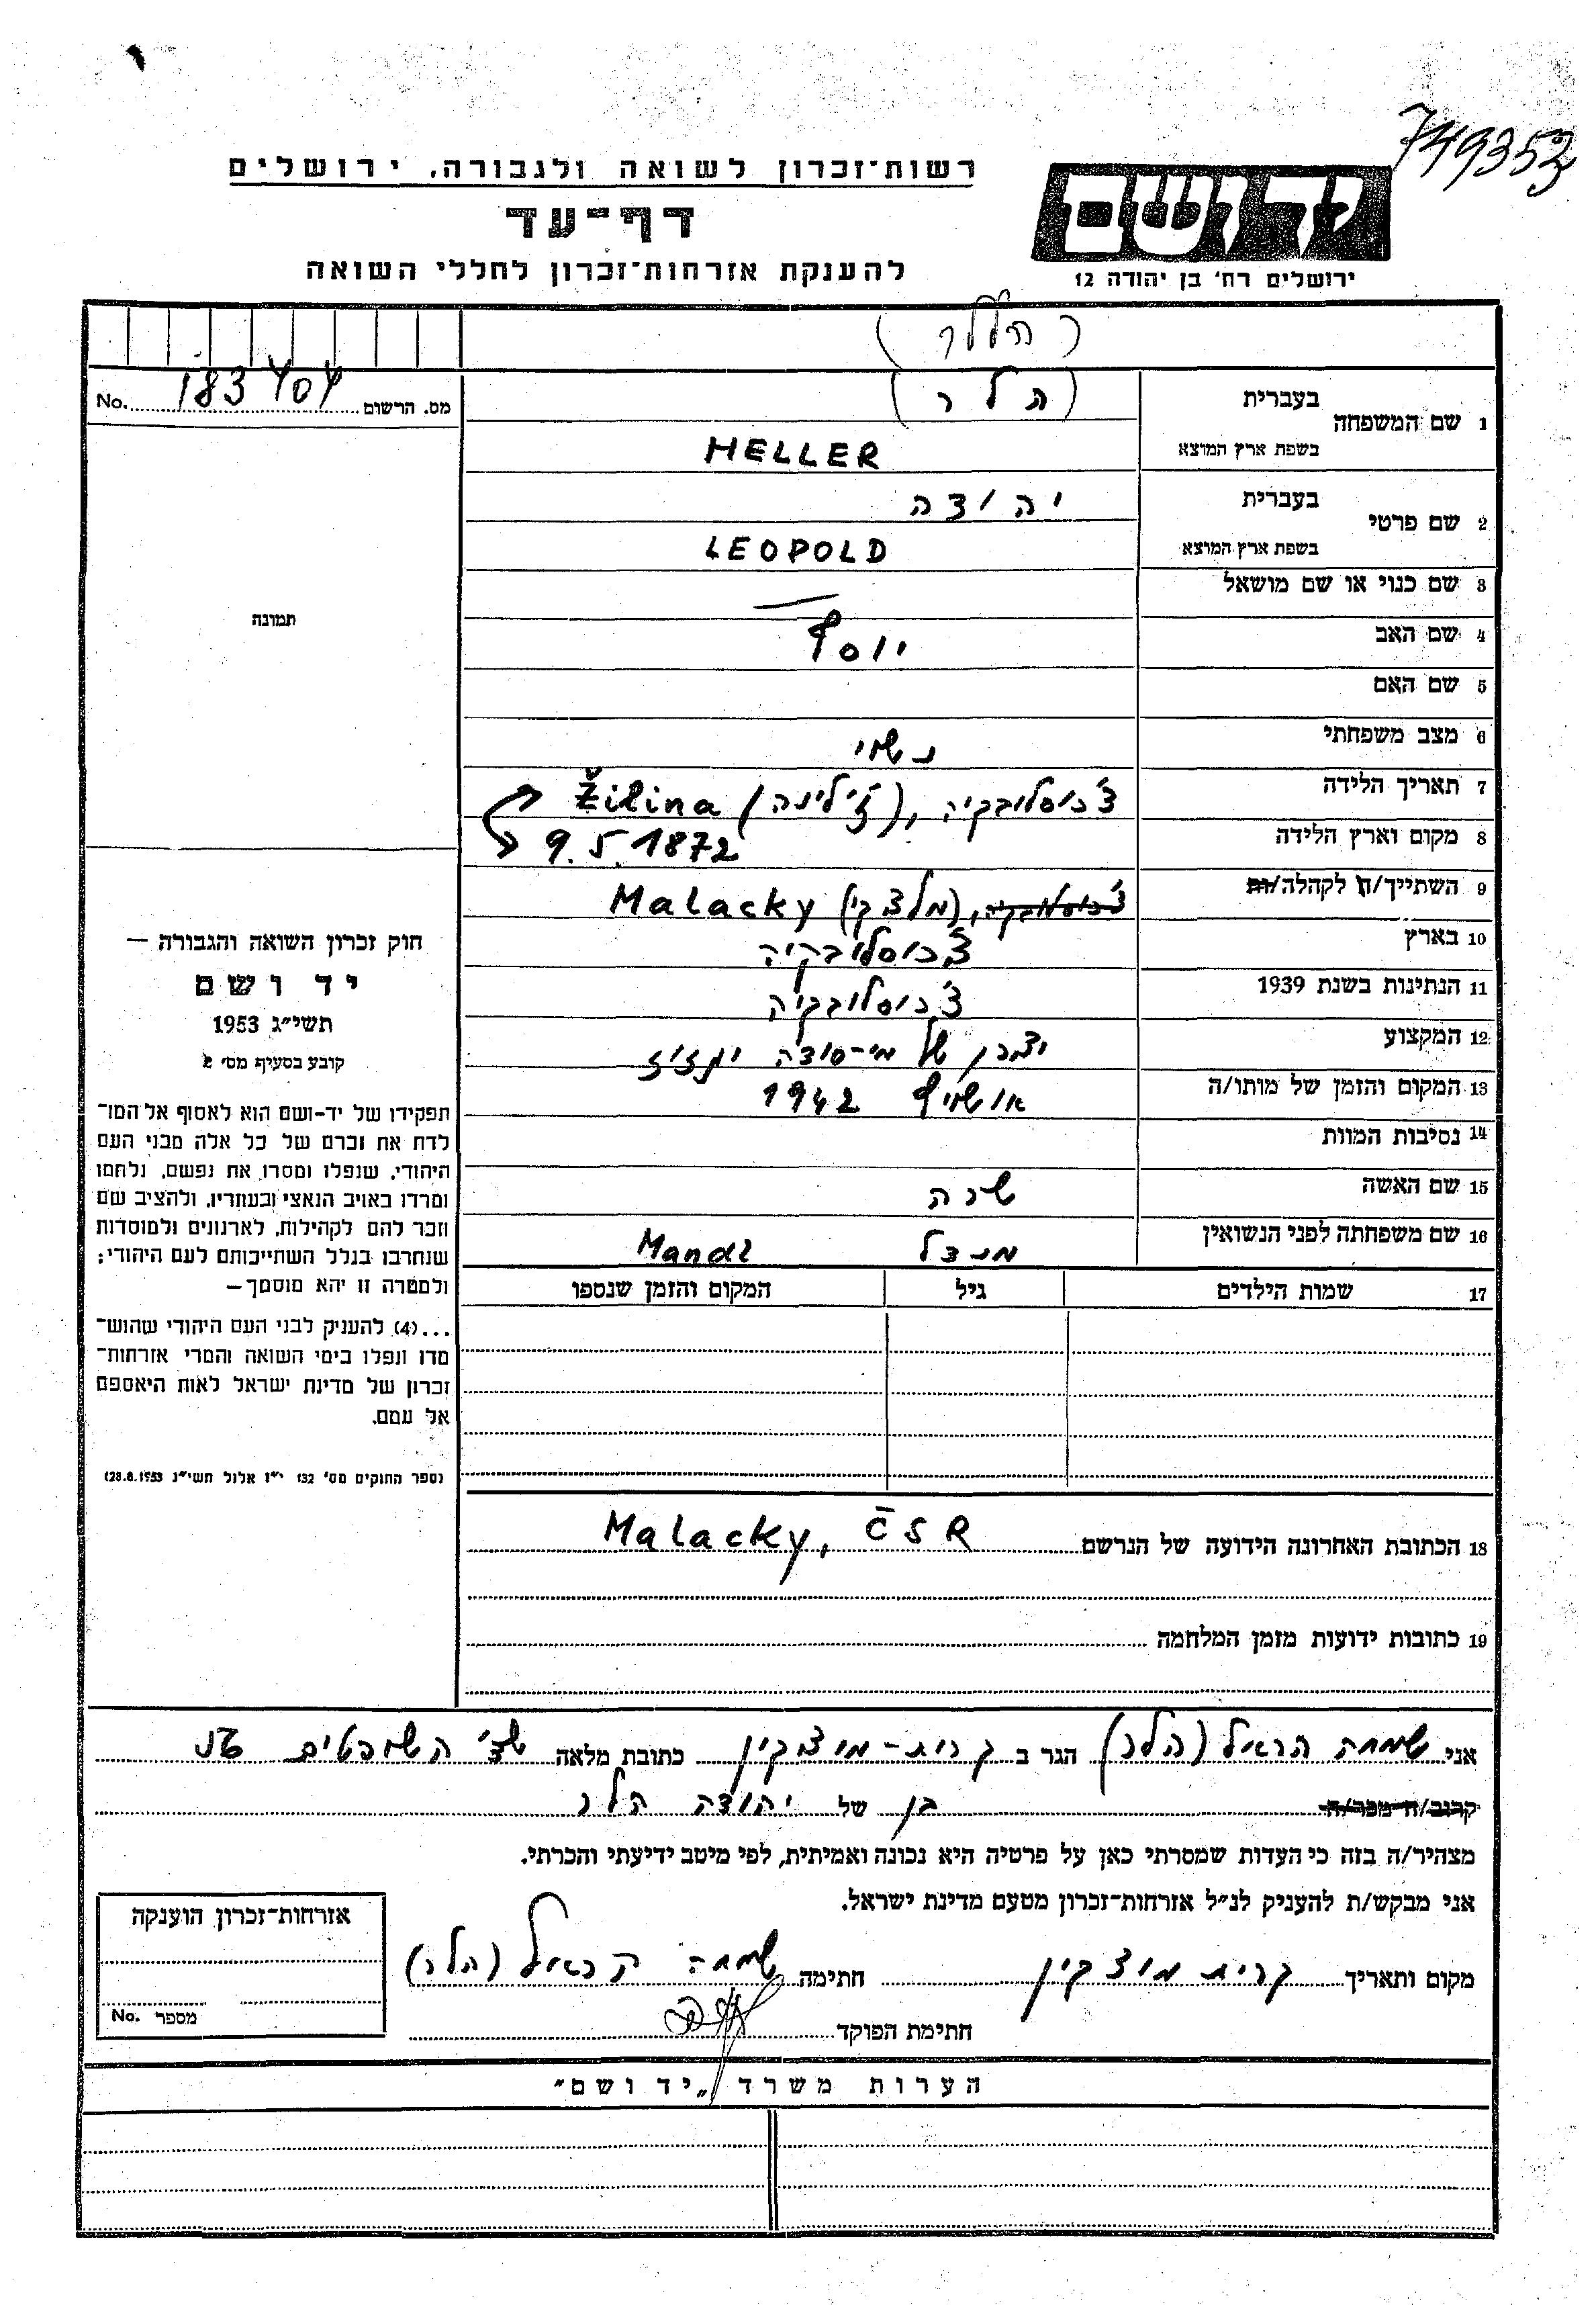 749353
רשות־זכרון לשואה ולגבורה, ירושלים
דף־עד
להענקת אזרחות־זכרון לחללי השואה
יד ושם
ירושלים רח' בן יהודה 12
(הלר)
מס. הרשום No. 183404
1 שם המשפחה בעברית (הלר)
בשפת ארץ המוצא HELLER
2 שם פרטי בעברית יהודה
בשפת ארץ המוצא LEOPOLD
3 שם כנוי או שם מושאל —
תמונה
4 שם האב יוסף
5 שם האם
6 מצב משפחתי נשוי
7 תאריך הלידה צ'כוסלובקיה, (ז'ילינה) Žilina
8 מקום וארץ הלידה 9.5.1872
9 השתייך/ה לקהלה/ות צ'כוסלובקיה, (מלצקי) Malacky
10 בארץ צ'כוסלובקיה
11 הנתינות בשנת 1939 צ'כוסלובקיה
12 המקצוע יצרן של מי-סודה וגזוז
13 המקום והזמן של מותו/ה אושויץ 1942
14 נסיבות המוות
15 שם האשה שרה
16 שם משפחתה לפני הנשואין מנדל Mandl
17 שמות הילדים גיל המקום והזמן שנספו
חוק זכרון השואה והגבורה —
יד ושם
תשי״ג 1953
קובע בסעיף מס' 2
תפקידו של יד-ושם הוא לאסוף אל המו־
לדת את זכרם של כל אלה מבני העם
היהודי, שנפלו ומסרו את נפשם, נלחמו
ומרדו באויב הנאצי ובעוזריו, ולהציב שם
וזכר להם לקהילות, לארגונים ולמוסדות
שנחרבו בגלל השתייכותם לעם היהודי;
ולמטרה זו יהא מוסמך—
...(4) להעניק לבני העם היהודי שהוש־
מדו ונפלו בימי השואה והמרי אזרחות־
זכרון של מדינת ישראל לאות היאספם
אל עמם.
(ספר החוקים מס' 132 י״ז אלול תשי״ג 28.8.1953)
18 הכתובת האחרונה הידועה של הנרשם Malacky, ČSR
19 כתובות ידועות מזמן המלחמה
אני שמחה הראל (הלר) הגר ב קרית-מוצקין כתובת מלאה שד' השופטים
קרוב/ה מכר/ה בן של יהודה הלר
מצהיר/ה בזה כי העדות שמסרתי כאן על פרטיה היא נכונה ואמיתית, לפי מיטב ידיעתי והכרתי.
אני מבקש/ת להעניק לנ״ל אזרחות־זכרון מטעם מדינת ישראל.
מקום ותאריך קרית מוצקין חתימה שמחה הראל (הלר)
חתימת הפוקד
אזרחות־זכרון הוענקה
מספר No.
הערות משרד „יד ושם״